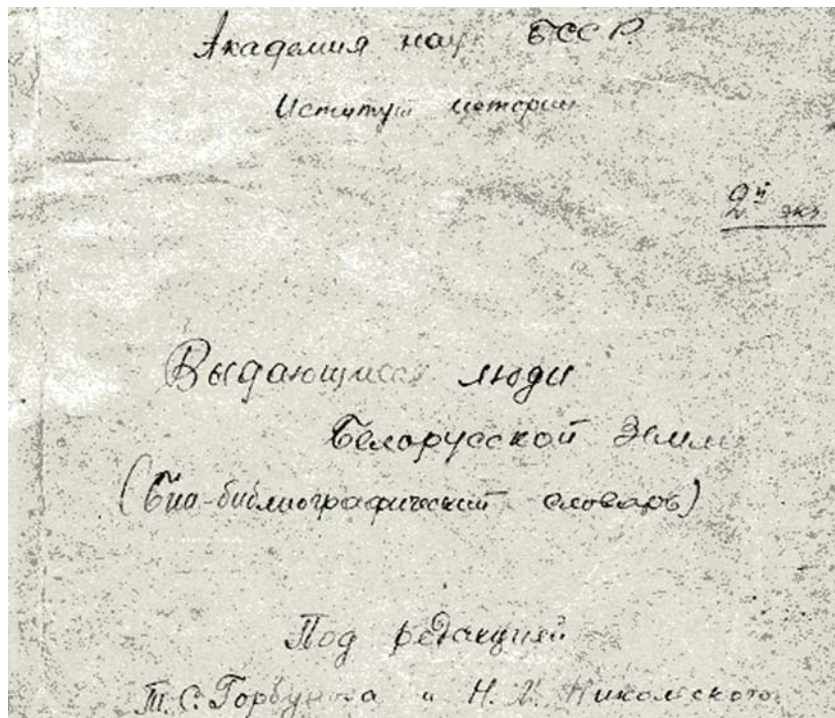 Академия наук БССР.
Иститут истории
2й экз
Выдающиеся люди
Белорусской Земли
(Био-библиографический словарь)
Под редакцией
Т.С. Горбунова и Н. М. Никольского